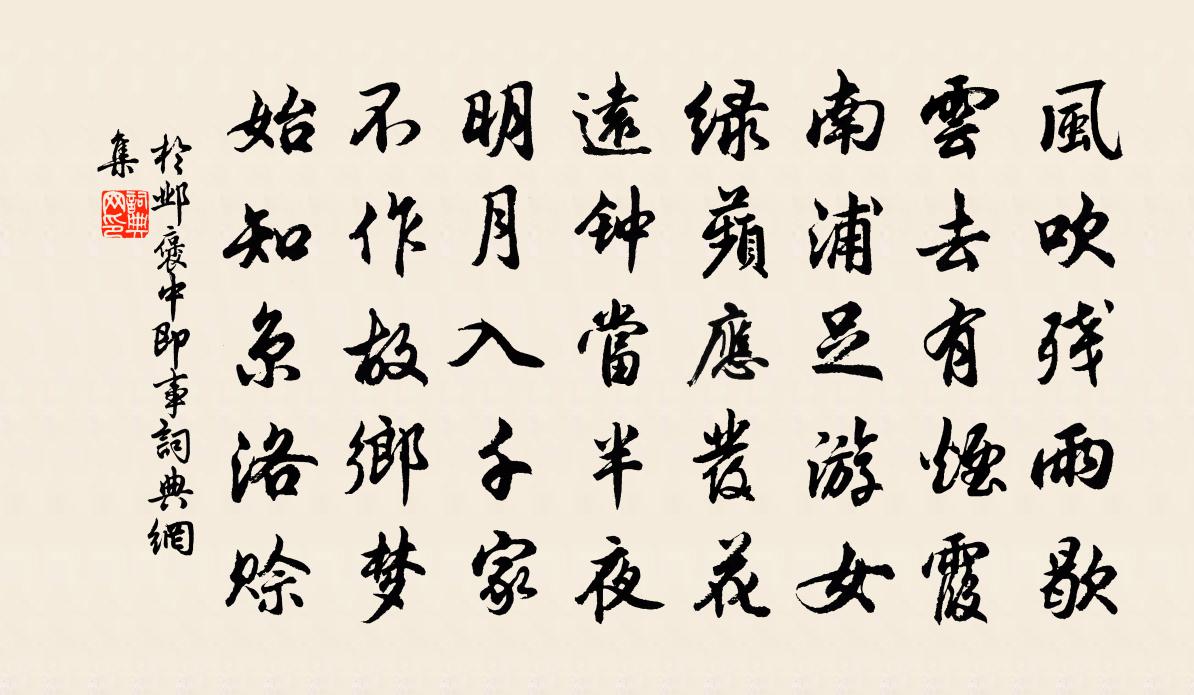 風吹残雨歇
雲去有煙霞
南浦足游女
绿蘋應發花
遠钟當半夜
明月入千家
不作故鄉梦
始知京洛赊
於邺褒中即事詞典網
集
詞典
网印